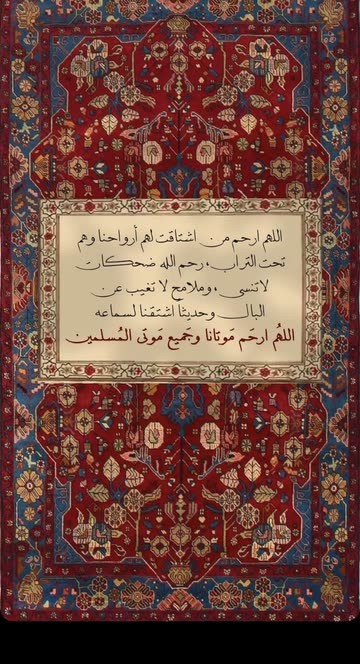 اللهم ارحم من اشتاقت لهم أرواحنا وهم
تحت التراب، رحم الله ضحكات
لا تنسى ، وملامح لا تغيب عن
البال وحديثا اشتقنا لسماعه
اللهُم ارحَم مَوتانا وجَميع مَوتَى المُسلمين